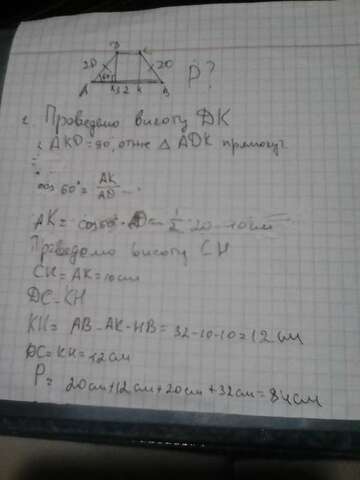 D C
20 20 P?
60°
A K 32 H B
Проведемо висоту DK
∠ AKD = 90°, отже △ ADK прямокут
cos 60° = AK/AD
AK = cos 60° · AD = 1/2 · 20 = 10 см
Проведемо висоту CH
CH = AK = 10 см
DC = KH
KH = AB - AK - HB = 32-10-10 = 12 см
DC = KH = 12 см
P = 20см+12см+20см+32см=84см